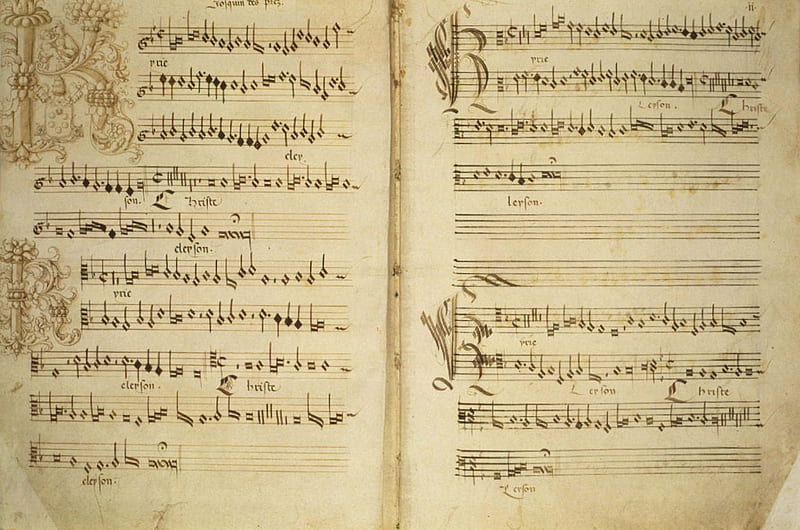 Josquin des Prez.
K
yrie
eley
son. Christe
eleyson.
K
yrie
eleyson. Christe
eleyson.
.ii.
K
yrie
Leyson. Christe
leyson.
K
yrie
Leyson Christe
Leyson